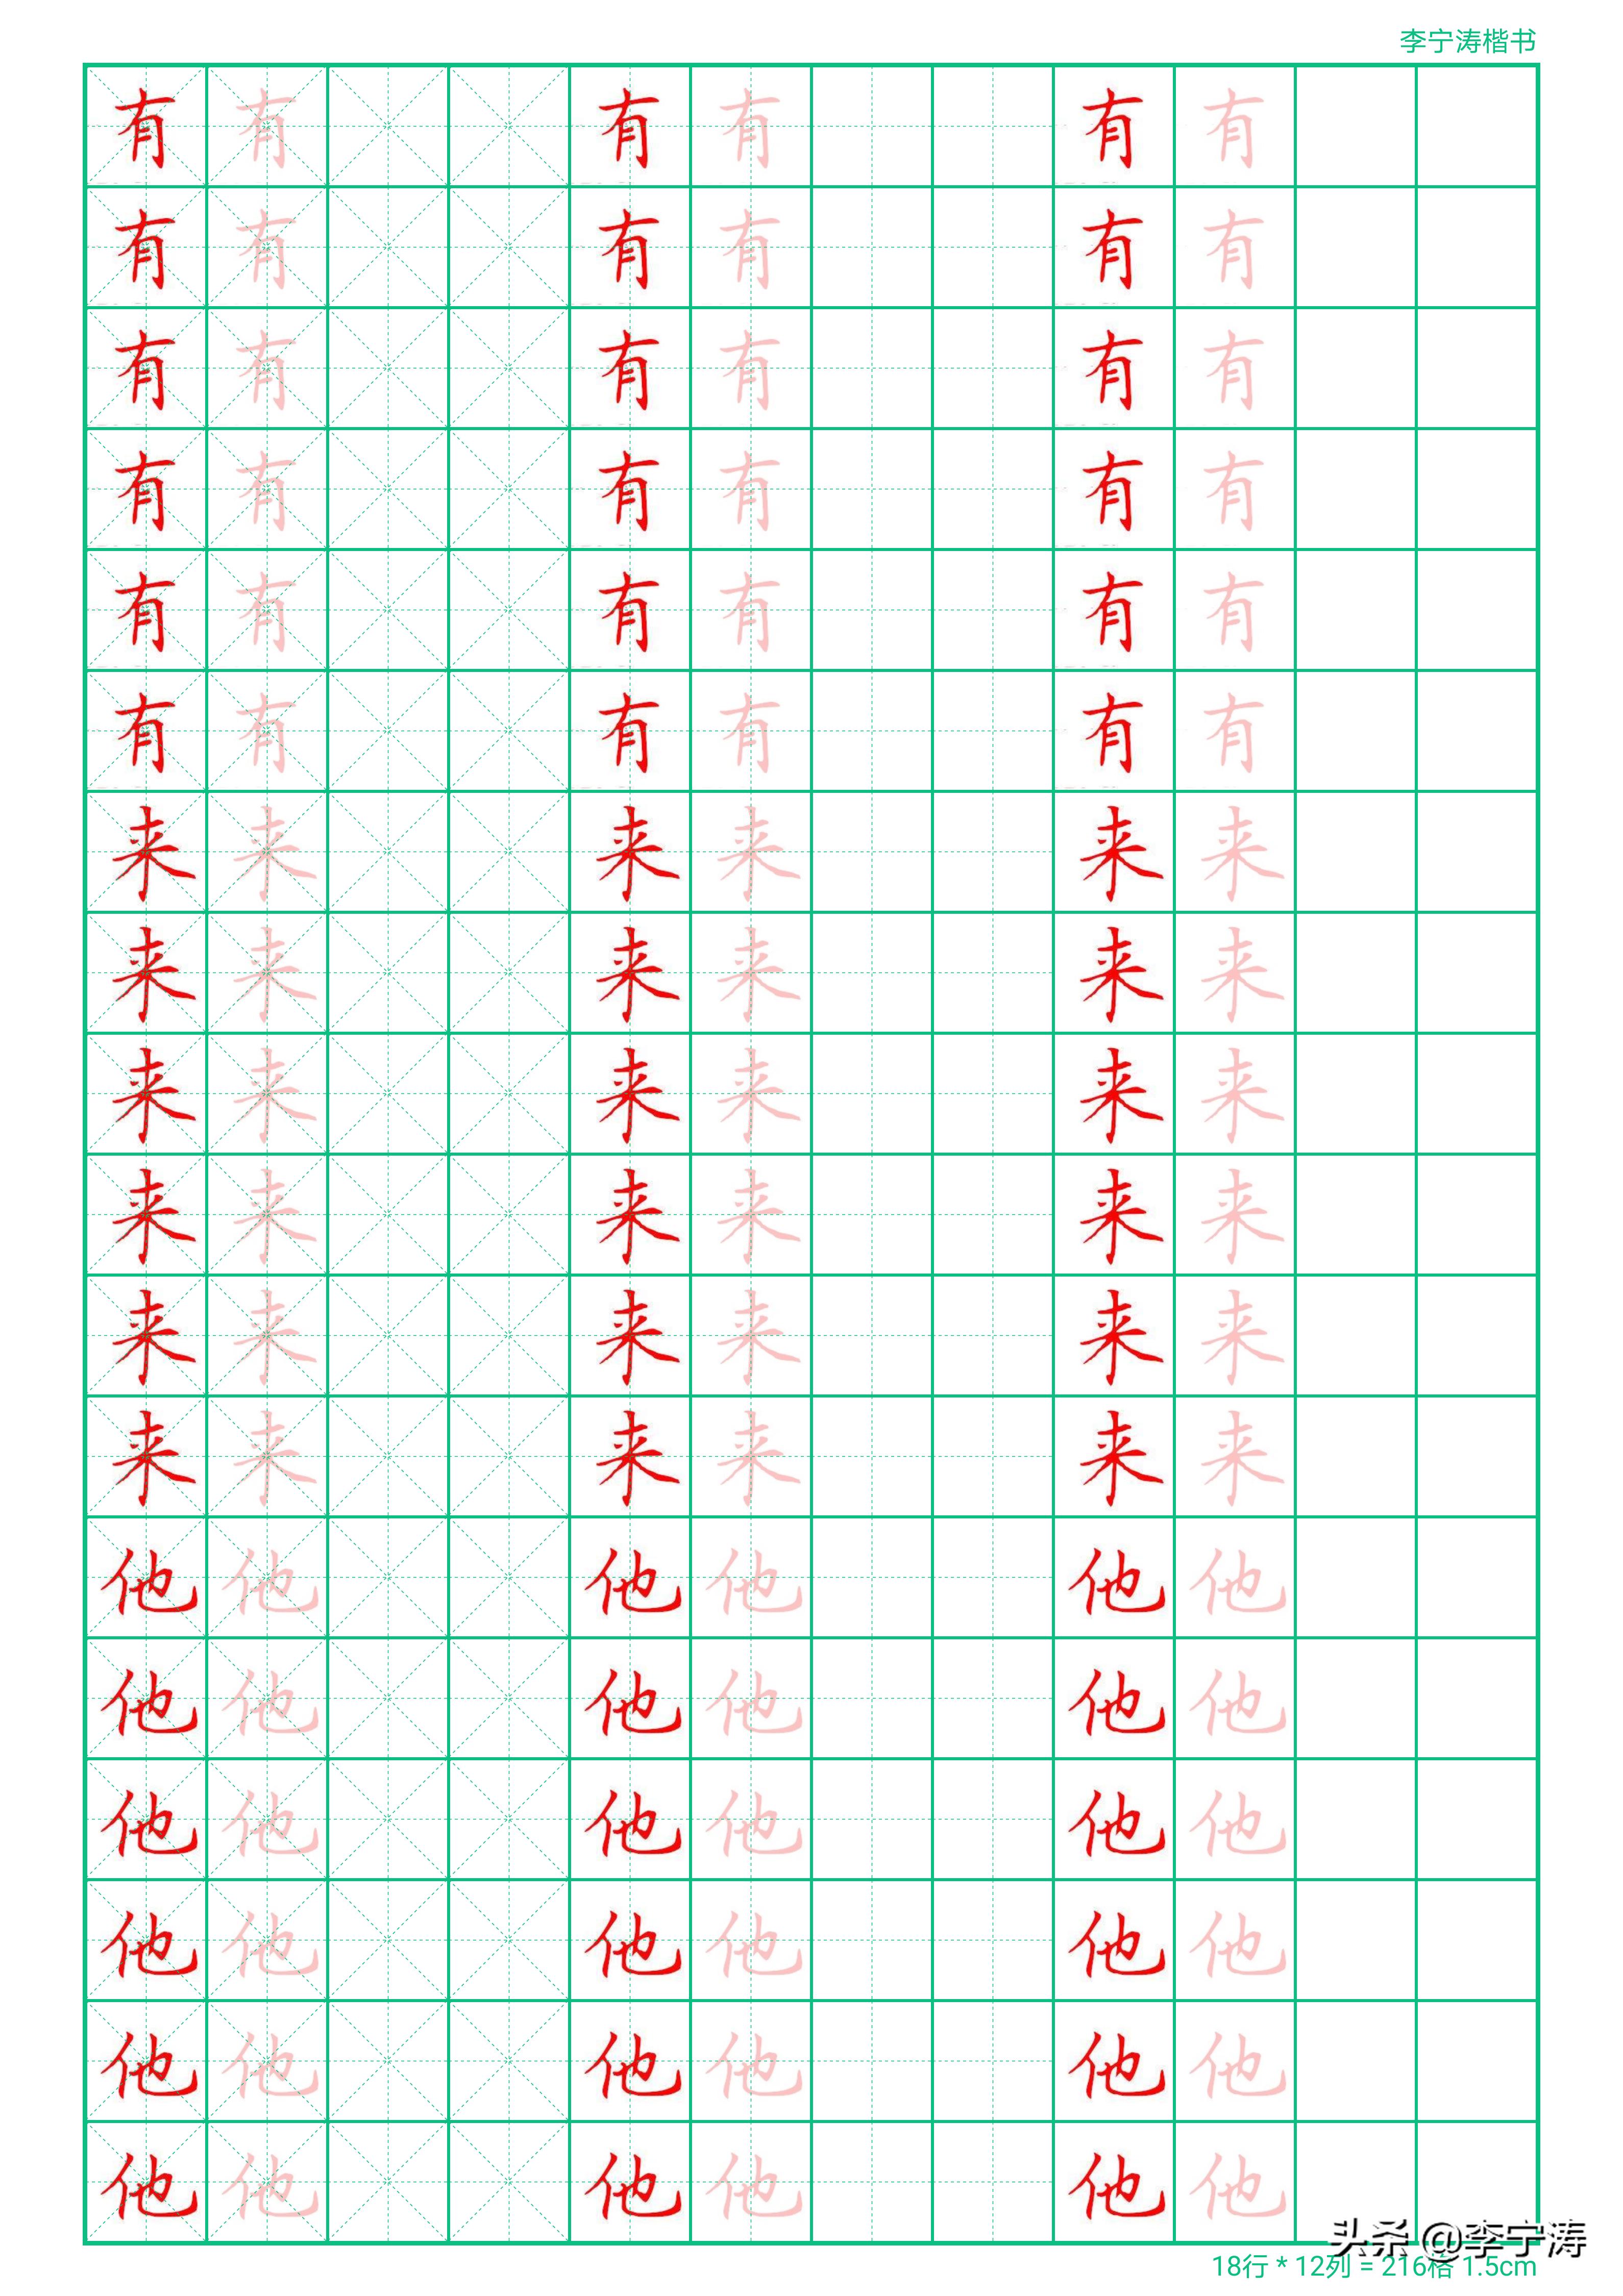 李宁涛楷书
有 有 有 有 有 有
有 有 有 有 有 有
有 有 有 有 有 有
有 有 有 有 有 有
有 有 有 有 有 有
有 有 有 有 有 有
来 来 来 来 来 来
来 来 来 来 来 来
来 来 来 来 来 来
来 来 来 来 来 来
来 来 来 来 来 来
来 来 来 来 来 来
他 他 他 他 他 他
他 他 他 他 他 他
他 他 他 他 他 他
他 他 他 他 他 他
他 他 他 他 他 他
他 他 他 他 他 他
头条 @李宁涛
18行 * 12列 = 216格 1.5cm